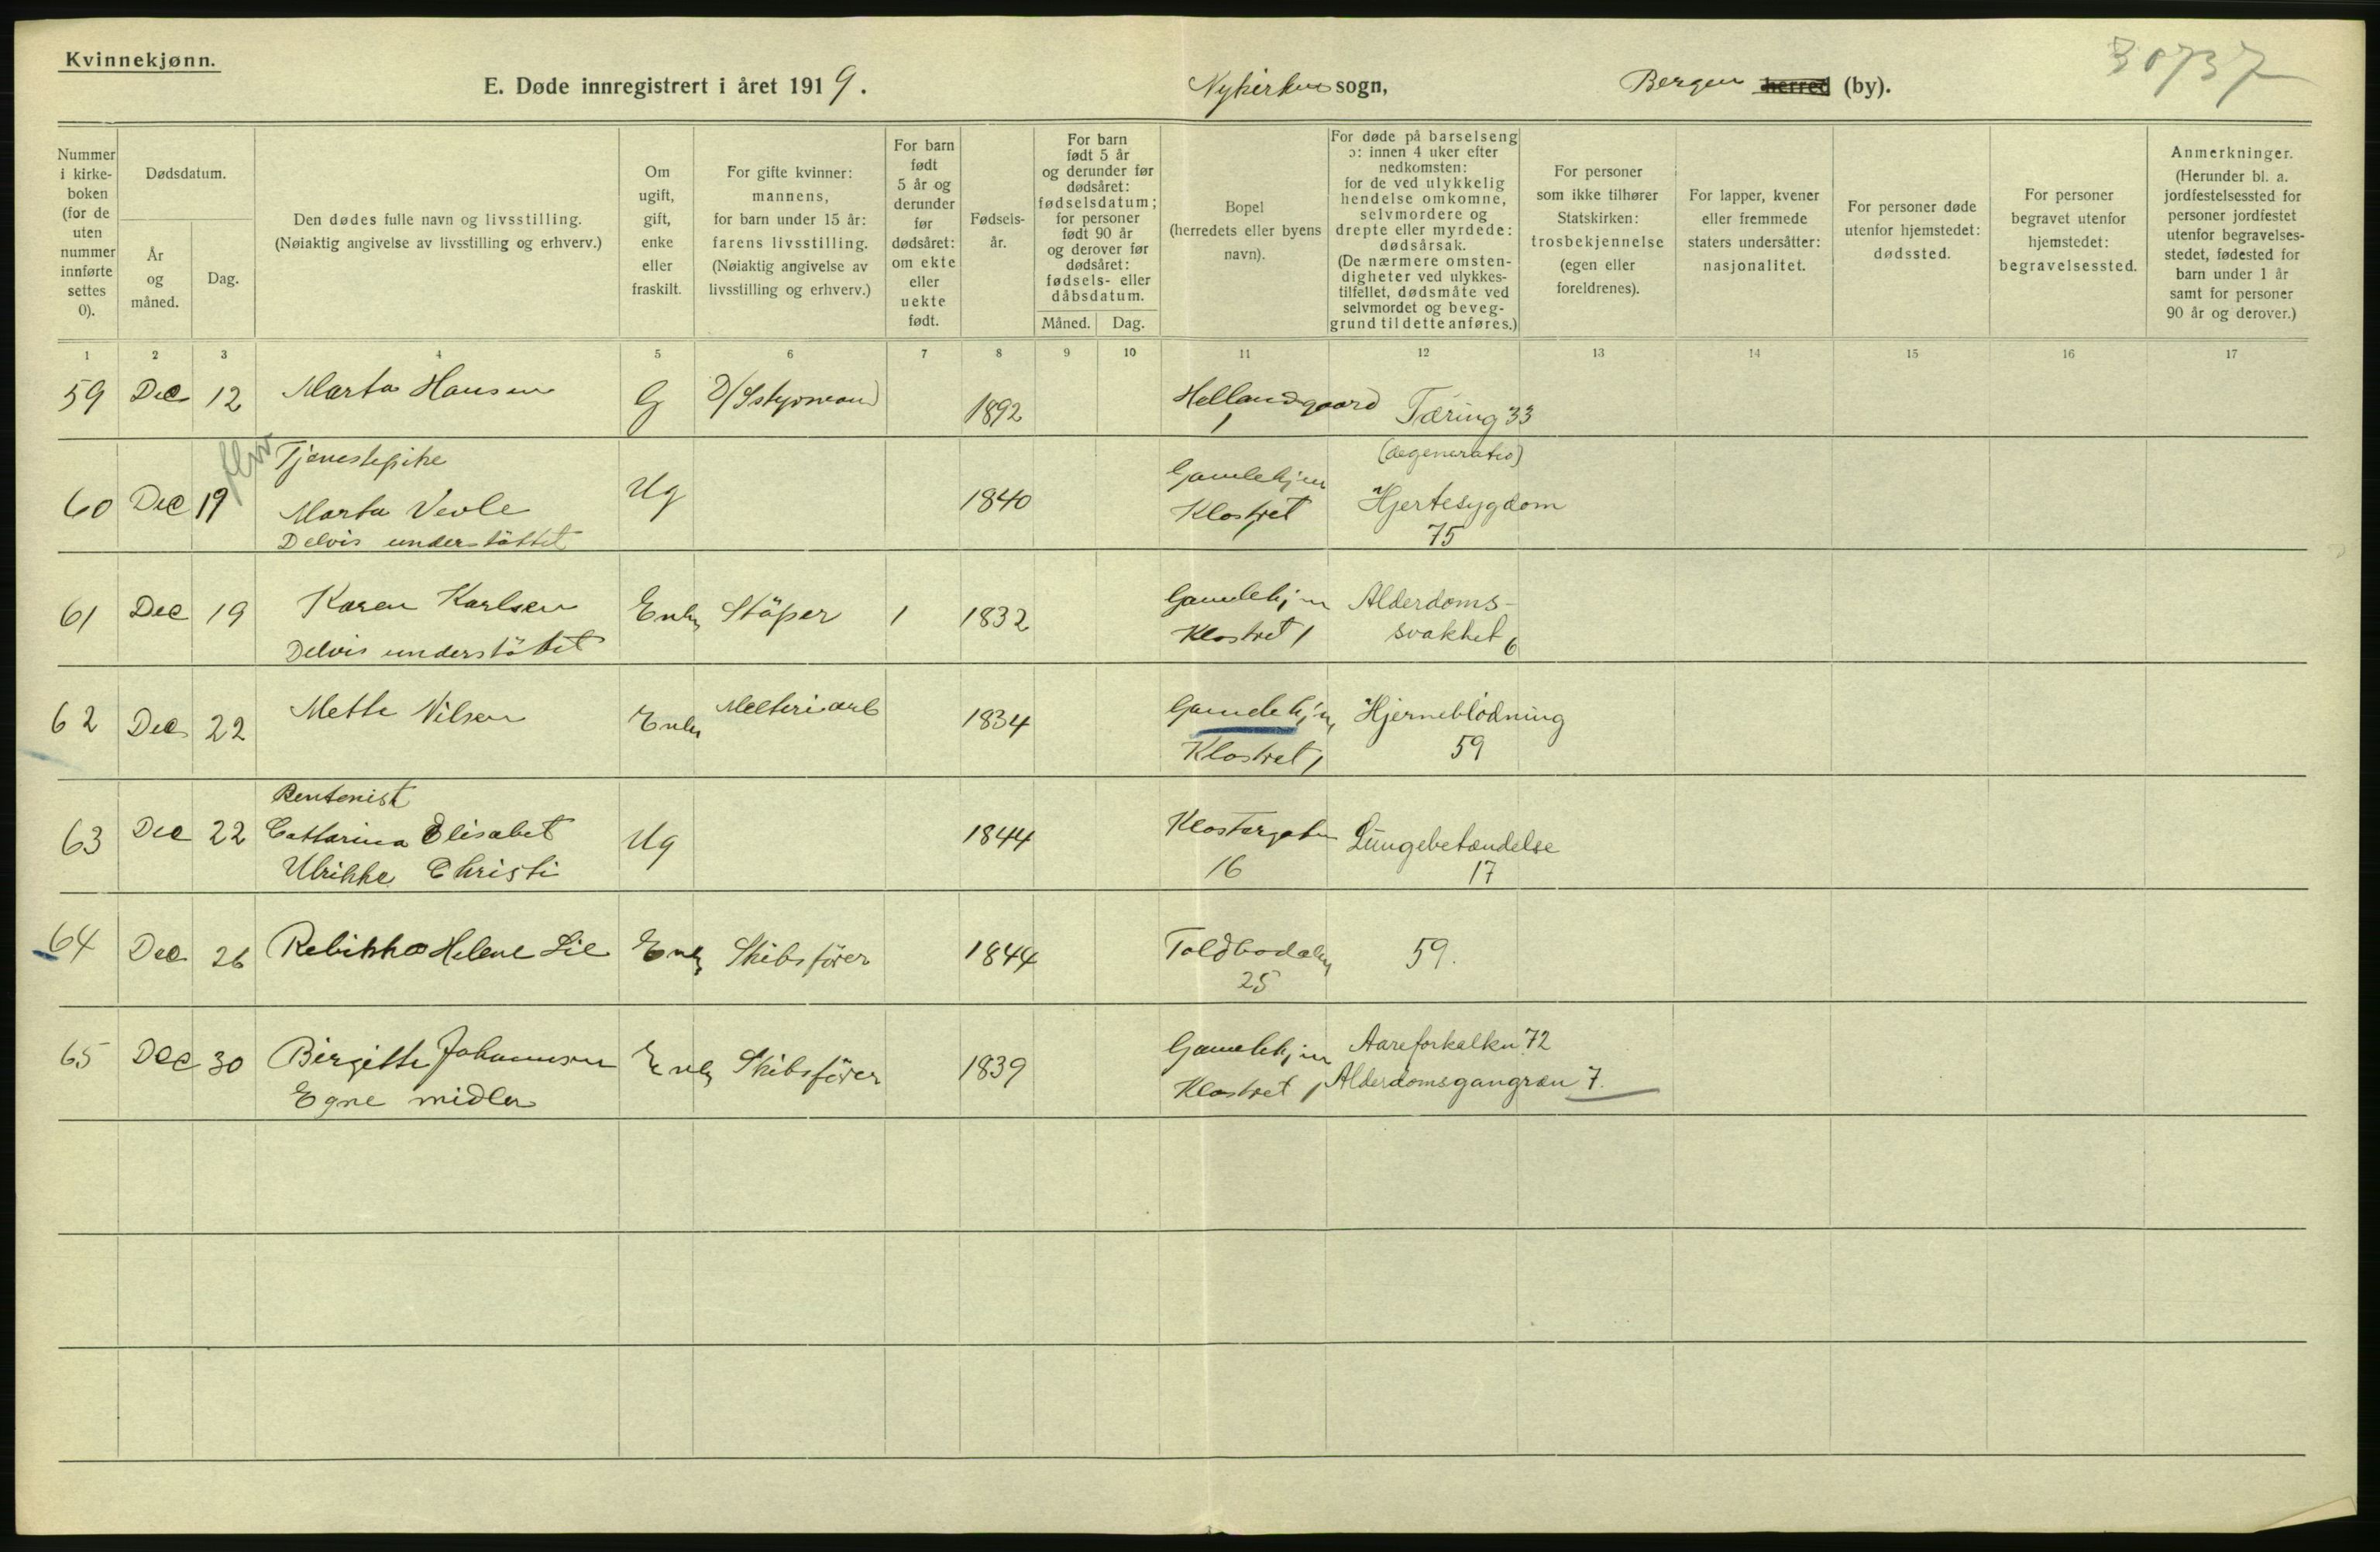 Kvinnekjønn.
30737
E. Døde innregistrert i året 1919. Nykirkens sogn, Bergen herred (by).
Nummer i kirkeboken (for de uten nummer innførte settes 0).
Dødsdatum.
År og måned.
Dag.
Den dødes fulle navn og livsstilling.
(Nøiaktig angivelse av livsstilling og erhverv.)
Om ugift, gift, enke eller fraskilt.
For gifte kvinner: mannens, for barn under 15 år: farens livsstilling. (Nøiaktig angivelse av livsstilling og erhverv.)
For barn født 5 år og derunder før dødsåret: om ekte eller uekte født.
Fødselsår.
For barn født 5 år og derunder før dødsåret: fødselsdatum; for personer født 90 år og derover før dødsåret: fødsels- eller dåbsdatum.
Måned. Dag.
Bopel (herredets eller byens navn).
For døde på barselseng ɔ: innen 4 uker efter nedkomsten: for de ved ulykkelig hendelse omkomne, selvmordere og drepte eller myrdede: dødsårsak. (De nærmere omstendigheter ved ulykkestilfellet, dødsmåte ved selvmordet og beveggrund til dette anføres.)
For personer som ikke tilhører Statskirken: trosbekjennelse (egen eller foreldrenes).
For lapper, kvener eller fremmede staters undersåtter: nasjonalitet.
For personer døde utenfor hjemstedet: dødssted.
For personer begravet utenfor hjemstedet: begravelsessted.
Anmerkninger. (Herunder bl. a. jordfestelsessted for personer jordfestet utenfor begravelsesstedet, fødested for barn under 1 år samt for personer 90 år og derover.)
1 2 3 4 5 6 7 8 9 10 11 12 13 14 15 16 17
59 Dec 12 Marta Hansen G D/Sstyrmand 1892 Hellandgaard 1 Tæring 33
Tjenestepike (degeneratio)
60 Dec 19 Marta Veole Ug 1840 Gamlehjem Klostret Hjertesygdom
Delvis understöttet 75
61 Dec 19 Karen Karlsen Enke Stöper 1 1832 Gamlehjem Alderdoms-
Delvis understöttet Klostret 1 svakhet 6
62 Dec 22 Mette Nilsen Enke 1834 Gamlehjem Hjerneblödning
Klostret 1 59
Rentenist
63 Dec 22 Cattarina Elisabet Ug 1844 Klostergaten Lungebetændelse
Ulrikke Christi 16 17
64 Dec 26 Rebikka Helene Lie Enke Skibsförer 1844 Toldbodalm 59.
25
65 Dec 30 Birgitte Johannesen Enke Skibsförer 1839 Gamlehjem Aareforkalkn 72
Egne midler Klostret 1 Alderdomsgangræn 7.